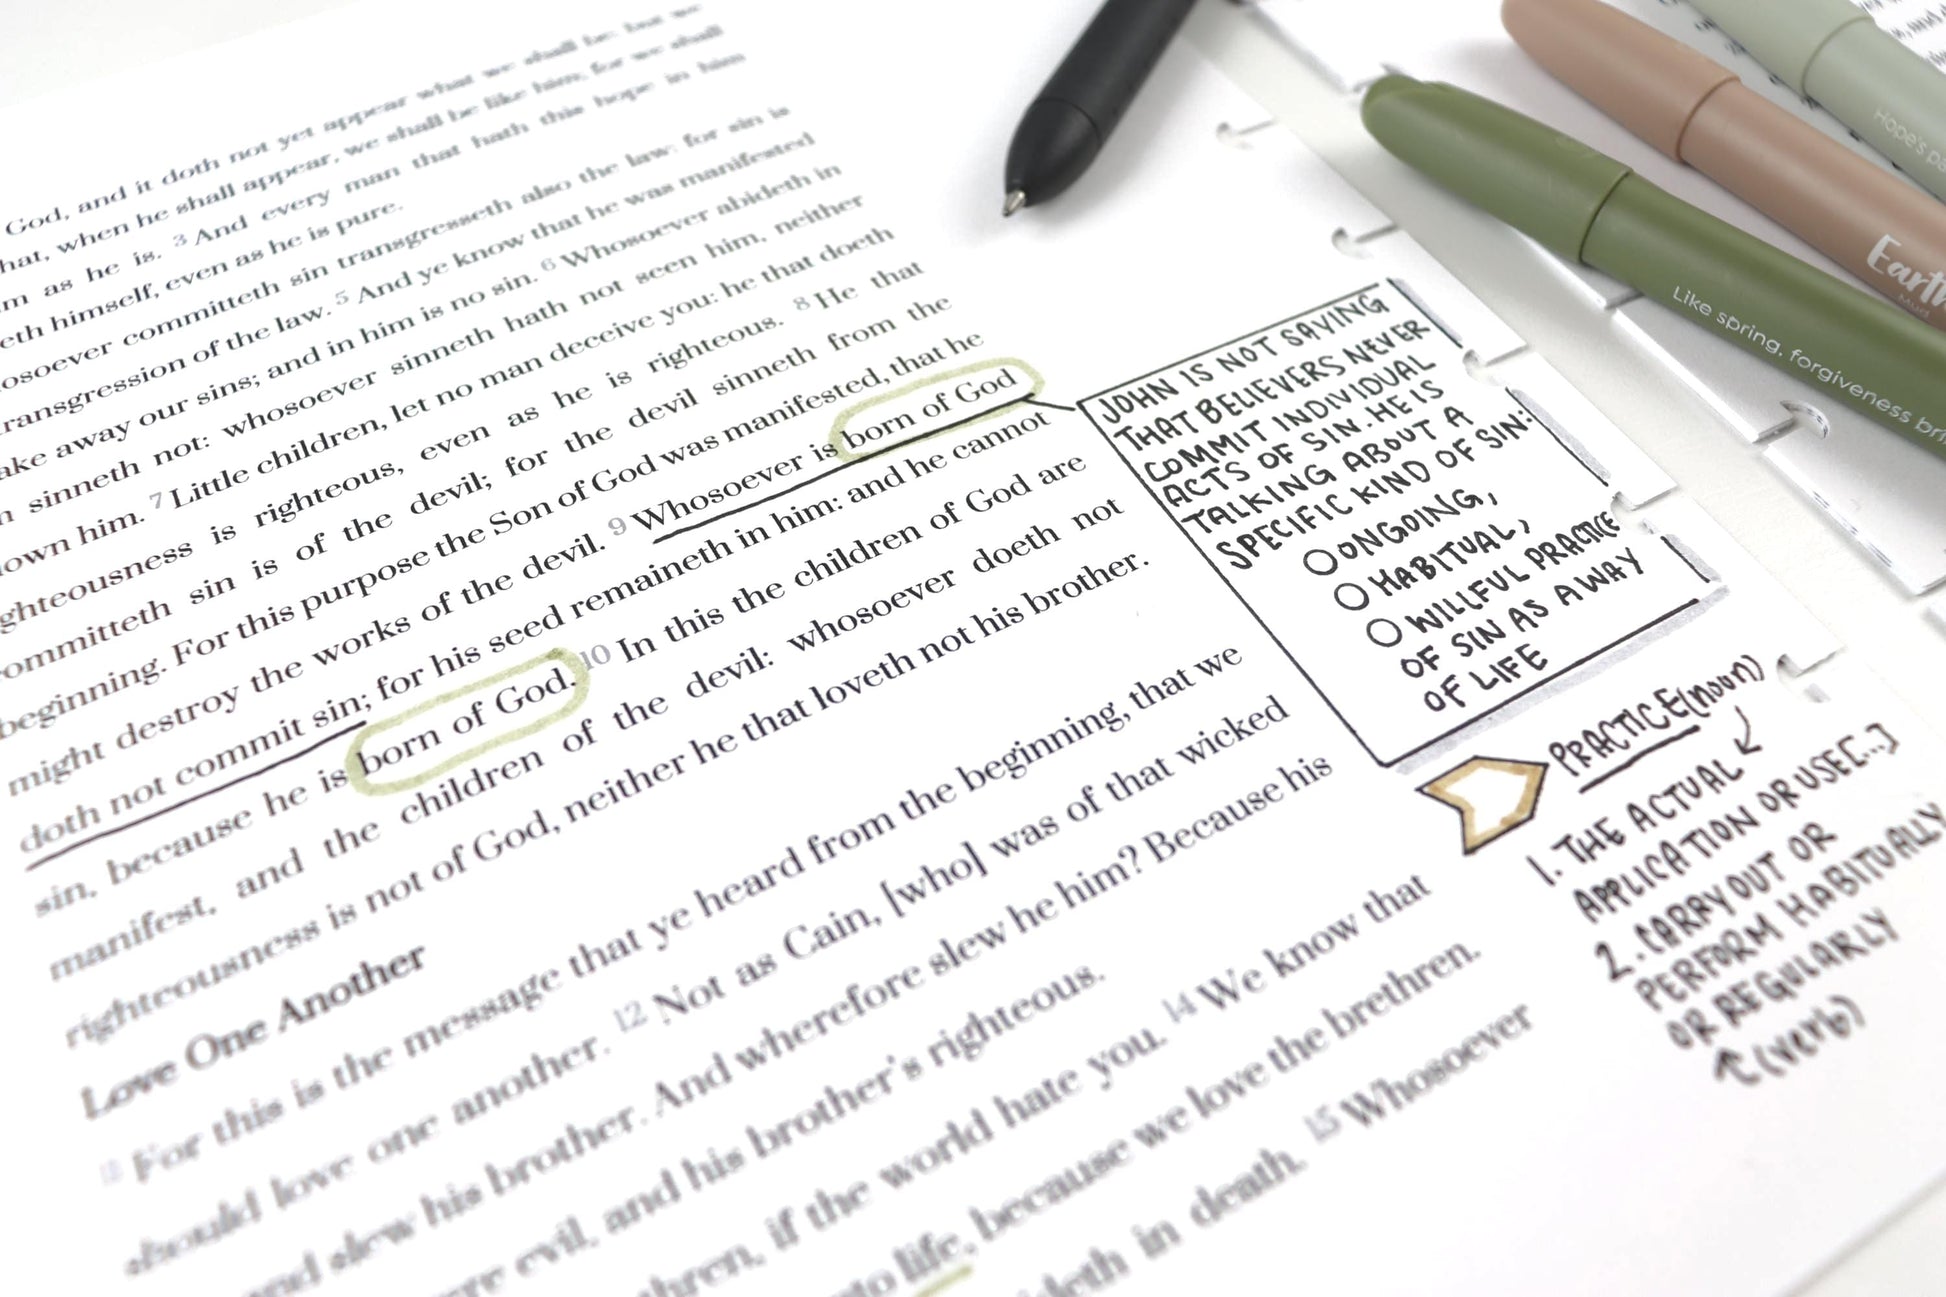 God, and it doth not yet appear what we shall be: but we
hat, when he shall appear, we shall be like him; for we shall
m as he is. 3 And every man that hath this hope in him
eth himself, even as he is pure.
osoever committeth sin transgresseth also the law: for sin is
ransgression of the law. 5 And ye know that he was manifested
ake away our sins; and in him is no sin. 6 Whosoever abideth in
n sinneth not: whosoever sinneth hath not seen him, neither
own him. 7 Little children, let no man deceive you: he that doeth
ghteousness is righteous, even as he is righteous. 8 He that
ommitteth sin is of the devil; for the devil sinneth from the
beginning. For this purpose the Son of God was manifested, that he
might destroy the works of the devil. 9 Whosoever is born of God
doth not commit sin; for his seed remaineth in him: and he cannot
sin, because he is born of God. 10 In this the children of God are
manifest, and the children of the devil: whosoever doeth not
righteousness is not of God, neither he that loveth not his brother.
Love One Another
11 For this is the message that ye heard from the beginning, that we
should love one another. 12 Not as Cain, [who] was of that wicked
and slew his brother. And wherefore slew he him? Because his
ere evil, and his brother's righteous.
thren, if the world hate you. 14 We know that
nto life, because we love the brethren.
ideth in death. 15 Whosoever
JOHN IS NOT SAYING
THAT BELIEVERS NEVER
COMMIT INDIVIDUAL
ACTS OF SIN. HE IS
TALKING ABOUT A
SPECIFIC KIND OF SIN:
ONGOING,
HABITUAL,
WILLFUL PRACTICE
OF SIN AS A WAY
OF LIFE
PRACTICE (noun)
1. THE ACTUAL
APPLICATION OR USE [...]
2. CARRY OUT OR
PERFORM HABITUALLY
OR REGULARLY
(verb)
Like spring, forgiveness bri
Earth
Mart
Hope's pa